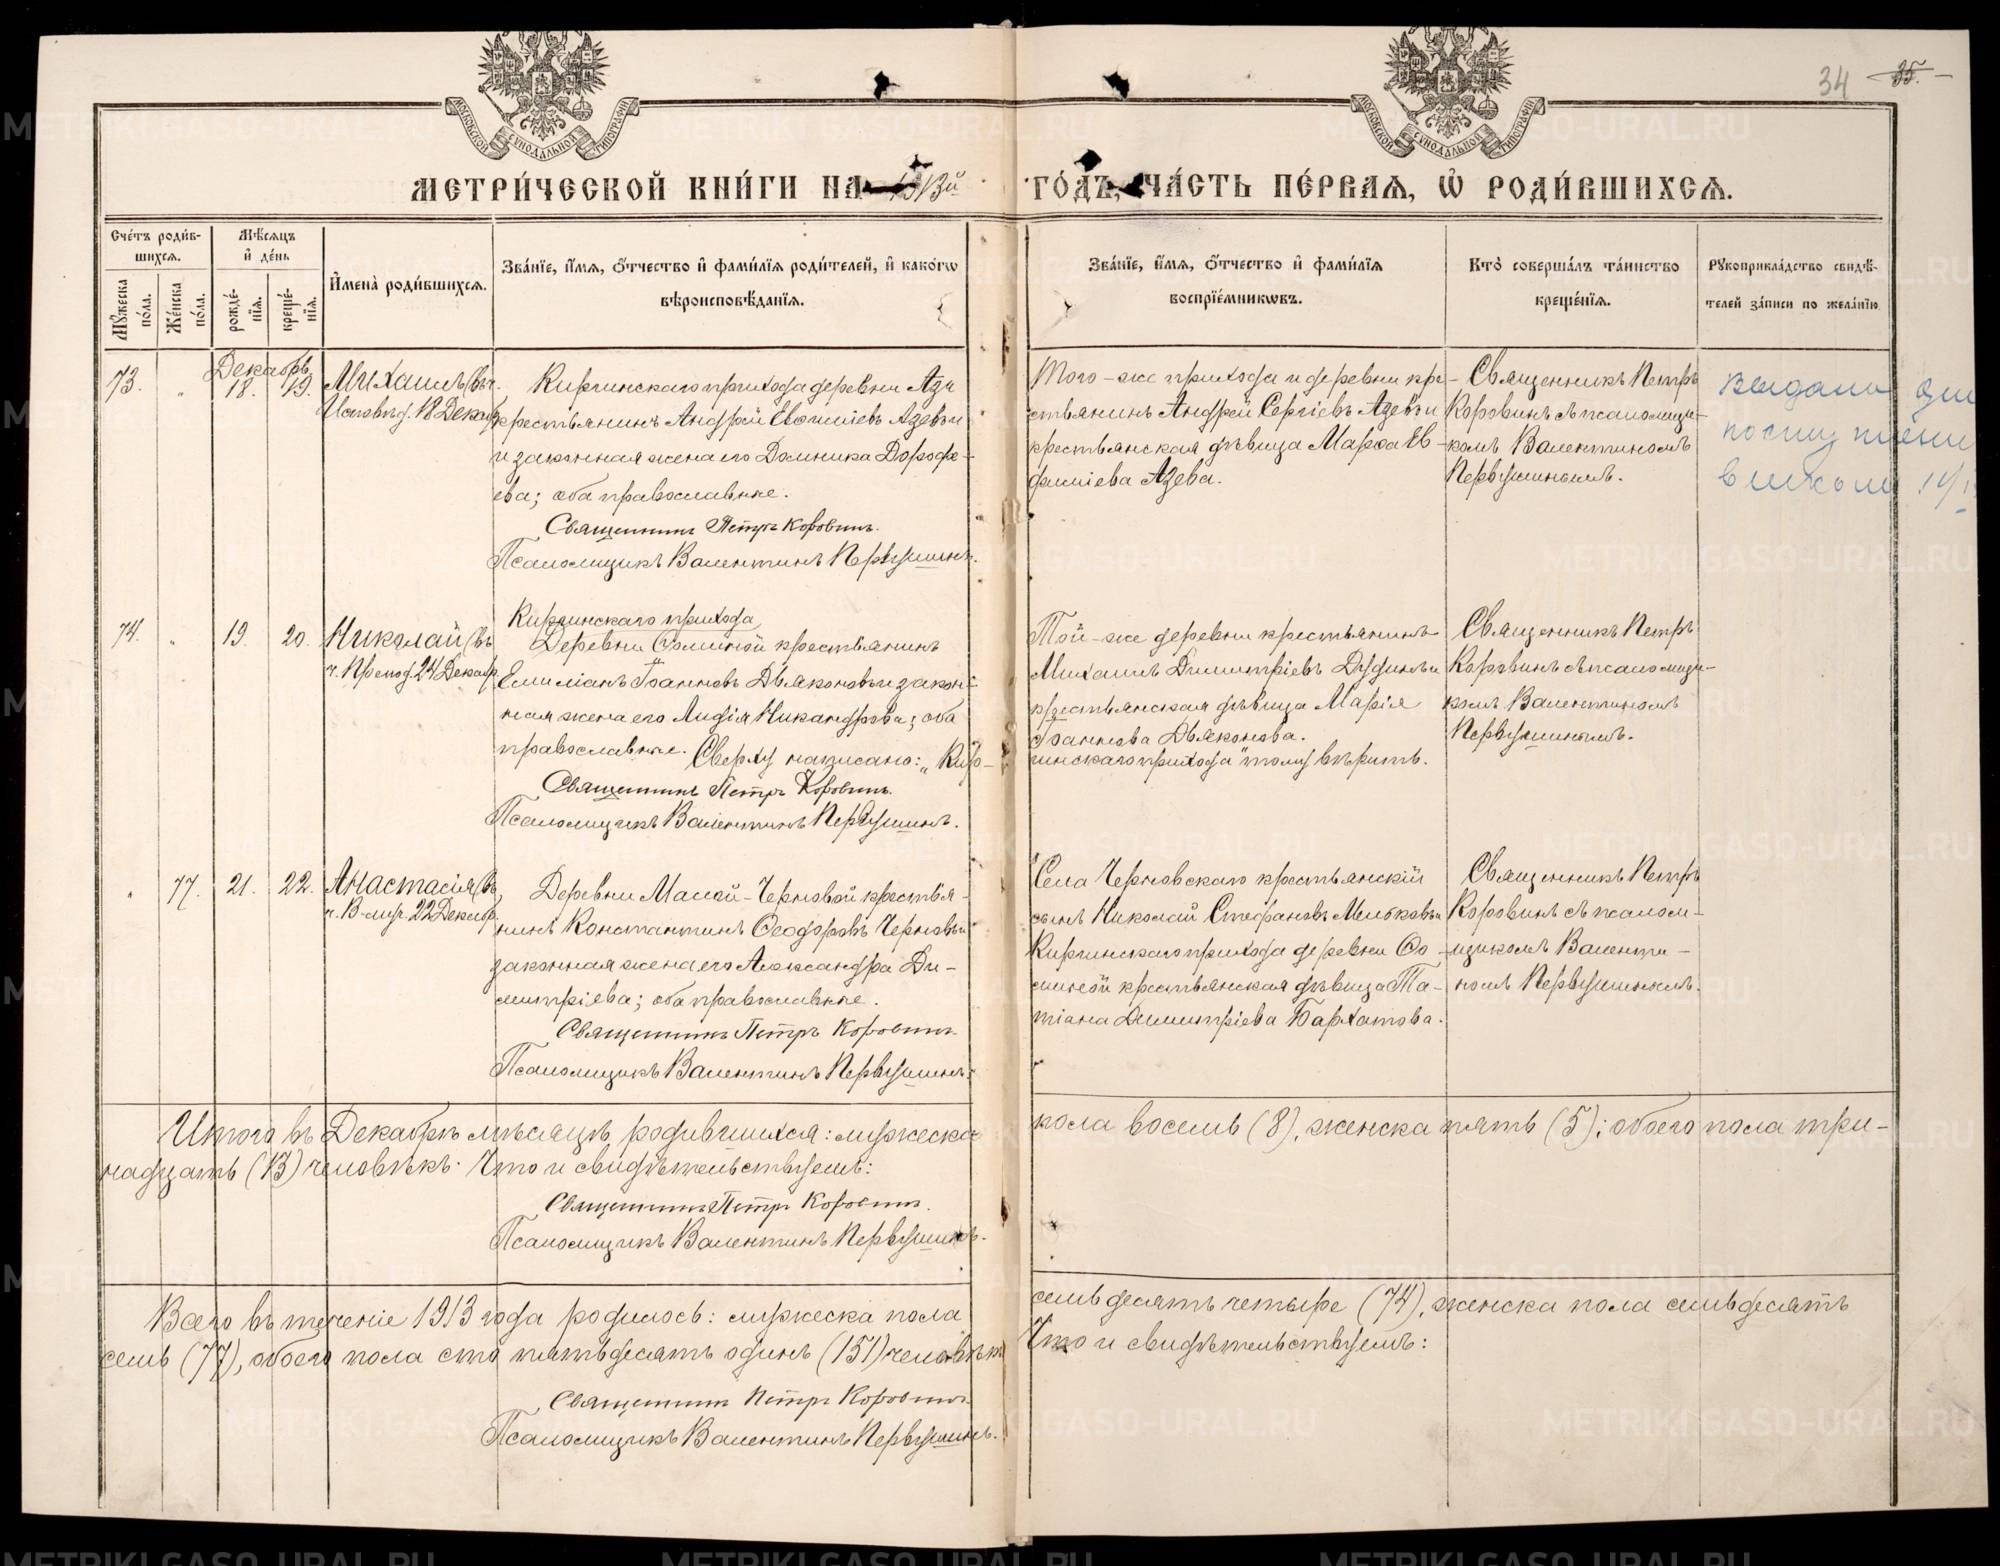 34 35.
МОСКОВСКОЙ СѴНОДАЛЬНОЙ ТИПОГРАФІИ
МОСКОВСКОЙ СѴНОДАЛЬНОЙ ТИПОГРАФІИ
МЕТРИ́ЧЕСКОЙ КНИ́ГИ НА 1913й
ГО́ДЪ, ЧА́СТЬ ПЕ́РВАѦ, Ѡ҆ РОДИ́ВШИХСѦ.
Сче́тъ роди́в-
шихсѧ.
Мꙋ́жеска
по́ла.
Же́нска
по́ла.
Мѣ́сѧцъ
и҆ де́нь
рожде́-
нїѧ.
креще́-
нїѧ.
И҆мена̀ роди́вшихсѧ.
Зва́нїе, и҆́мѧ, ѻ҆́тчество и҆ фами́лїѧ роди́телей, и҆ како́гѡ
вѣроисповѣ́данїѧ.
Зва́нїе, и҆́мѧ, ѻ҆́тчество и҆ фами́лїѧ
воспрїе́мникѡвъ.
Кто̀ соверша́лъ та́инство
креще́нїѧ.
Рꙋкоприкла́дство свидѣ́-
телей за́писи по жела́нїю
Декабрь
73. „ 18. 19.
Михаилъ (въ ч.
Исповѣд. 18 Декаб.
Киргинскаго прихода деревни Азе
крестьянинъ Андрей Евфиміевъ Азевъ и
и законная жена его Домника Дорофе-
ева; оба православные.
Священникъ Петръ Коровинъ.
Псаломщикъ Валентинъ Первушинъ.
Того-же прихода и деревни кре-
стьянинъ Андрей Сергіевъ Азевъ и
крестьянская дѣвица Марѳа Ев-
фиміева Азева.
Священникъ Петръ
Коровинъ съ псаломщи-
комъ Валентиномъ
Первушинымъ.
Выдана для
в школу
74. „ 19. 20.
Николай (въ
ч. Препод. 24 Декабр.
Киргинскаго прихода
Деревни Ѳоминой крестьянинъ
Емиліанъ Іоанновъ Дьяконовъ и закон-
ная жена его Лидія Никандрова; оба
православные. Сверху написано: „Кир-
Священникъ Петръ Коровинъ.
Псаломщикъ Валентинъ Первушинъ.
Той-же деревни крестьянинъ
Михаилъ Димитріевъ Дудинъ и
крестьянская дѣвица Марія
Іоаннова Дьяконова.
гинскаго прихода" тому вѣрить.
Священникъ Петръ
Коровинъ съ псаломщи-
комъ Валентиномъ
Первушинымъ.
„ 77. 21. 22.
Анастасія (въ
ч. В-муч. 22 Декабр.
Деревни Малой-Черновой крестья-
нинъ Константинъ Ѳеодоровъ Черновъ и
законная жена его Александра Ди-
митріева; оба православные.
Священникъ Петръ Коровинъ.
Псаломщикъ Валентинъ Первушинъ.
Села Черновскаго крестьянскій
сынъ Николай Стефановъ Милковъ и
Киргинскаго прихода деревни Ѳо-
миной крестьянская дѣвица Та-
тіана Димитріева Бархатова.
Священникъ Петръ
Коровинъ съ псалом-
щикомъ Валенти-
номъ Первушинымъ.
Итого въ Декабрѣ мѣсяцѣ родившихся: мужеска
пола восемь (8), женска пять (5); обоего пола три-
надцать (13) человѣкъ. Что и свидѣтельствуемъ:
Священникъ Петръ Коровинъ.
Псаломщикъ Валентинъ Первушинъ.
Всего въ теченіе 1913 года родилось: мужеска пола
семьдесятъ четыре (74), женска пола семьдесятъ
семь (77), обоего пола сто пятьдесятъ одинъ (151) человѣкъ
Что и свидѣтельствуемъ:
Священникъ Петръ Коровинъ.
Псаломщикъ Валентинъ Первушинъ.
METRIKI.GASO-URAL.RU